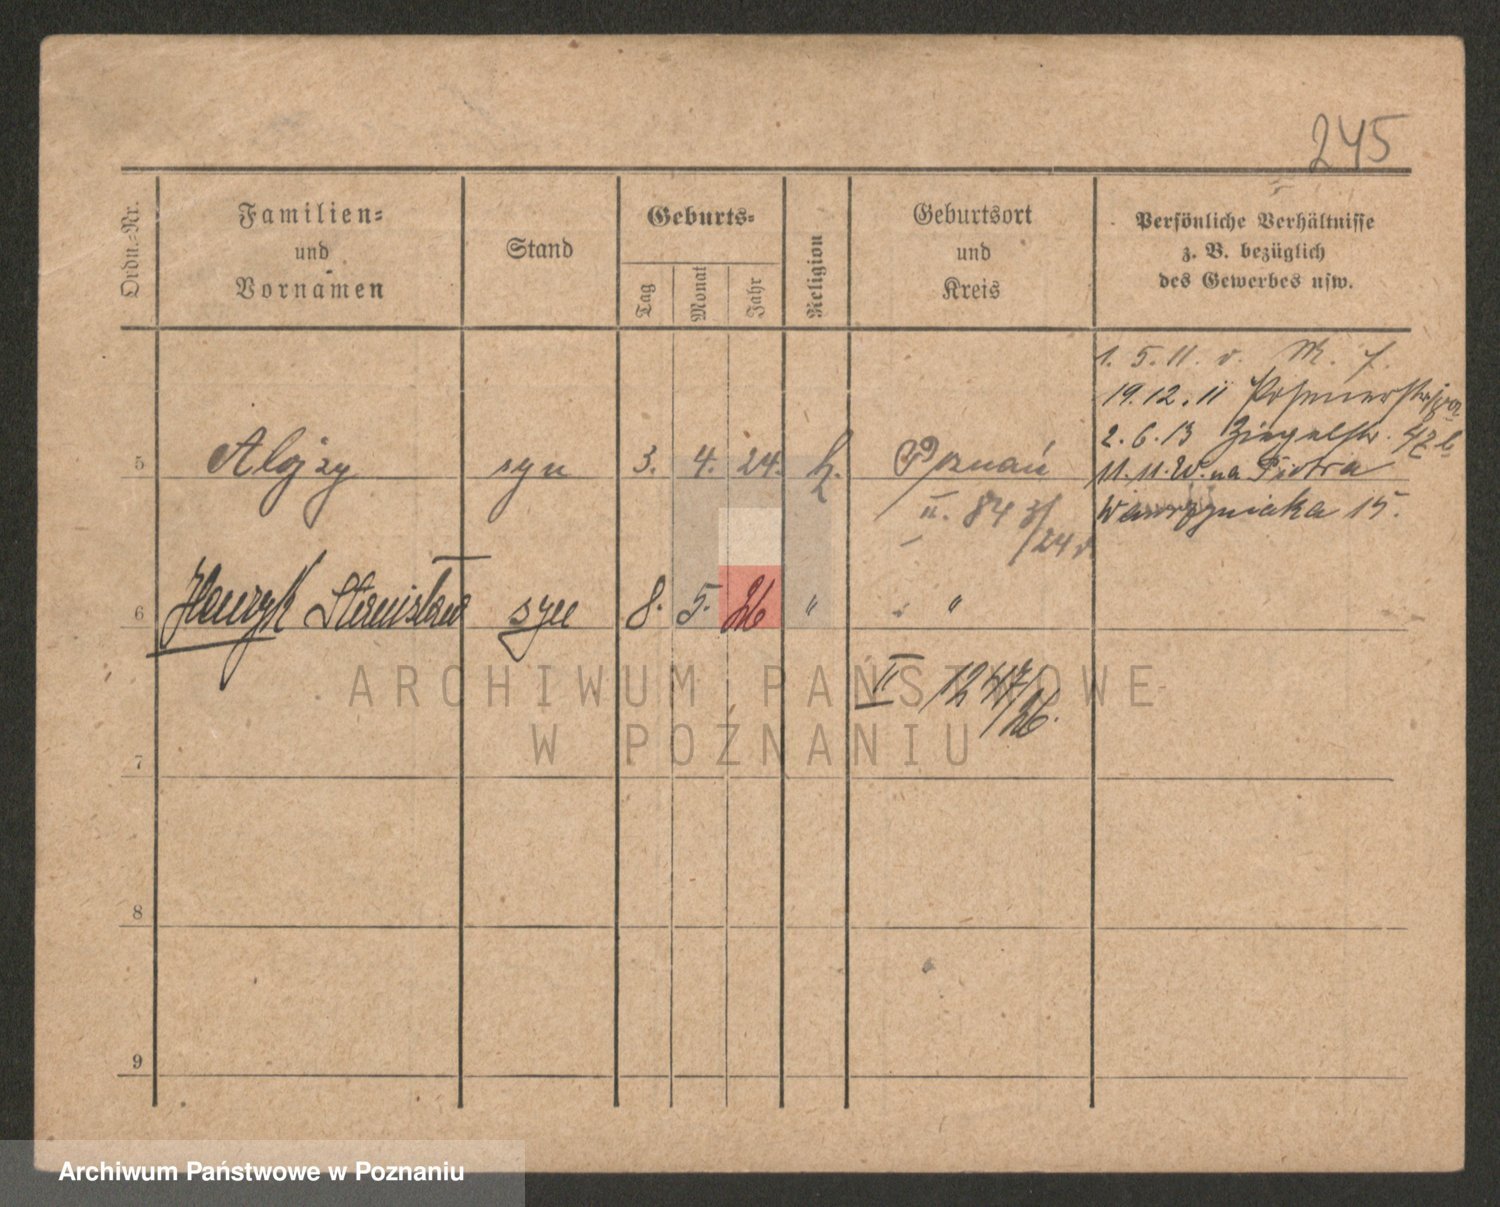 245
Ordn.-Nr.
Familien-
und
Vornamen
Stand
Geburts-
Tag
Monat
Jahr
Religion
Geburtsort
und
Kreis
Persönliche Verhältnisse
z. B. bezüglich
des Gewerbes usw.
1. 5. 11. v.
19. 12. 11 Posenerstr
2. 6. 13 Ziegelstr.
5 Alojzy syn 3. 4. 24. k. Poznań
11. 11. W. na Piotra
Wawrzyniaka 15.
II. 84 3/24
6 Henryk Stanisław syn 8. 5. 26 " "
II 1247/26.
7
8
9
ARCHIWUM PAŃSTWOWE
W POZNANIU
Archiwum Państwowe w Poznaniu